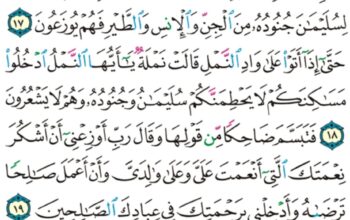 لِسُلَيْمَٰنَ جُنُودُهُۥ مِنَ ٱلْجِنِّ وَٱلْإِنسِ وَٱلطَّيْرِ فَهُمْ يُوزَعُونَ ١٧
حَتَّىٰٓ إِذَآ أَتَوْا۟ عَلَىٰ وَادِ ٱلنَّمْلِ قَالَتْ نَمْلَةٌ يَٰٓأَيُّهَا ٱلنَّمْلُ ٱدْخُلُوا۟
مَسَٰكِنَكُمْ لَا يَحْطِمَنَّكُمْ سُلَيْمَٰنُ وَجُنُودُهُۥ وَهُمْ لَا يَشْعُرُونَ
١٨ فَتَبَسَّمَ ضَاحِكًا مِّن قَوْلِهَا وَقَالَ رَبِّ أَوْزِعْنِىٓ أَنْ أَشْكُرَ
نِعْمَتَكَ ٱلَّتِىٓ أَنْعَمْتَ عَلَىَّ وَعَلَىٰ وَٰلِدَىَّ وَأَنْ أَعْمَلَ صَٰلِحًا
تَرْضَىٰهُ وَأَدْخِلْنِى بِرَحْمَتِكَ فِى عِبَادِكَ ٱلصَّٰلِحِينَ ١٩